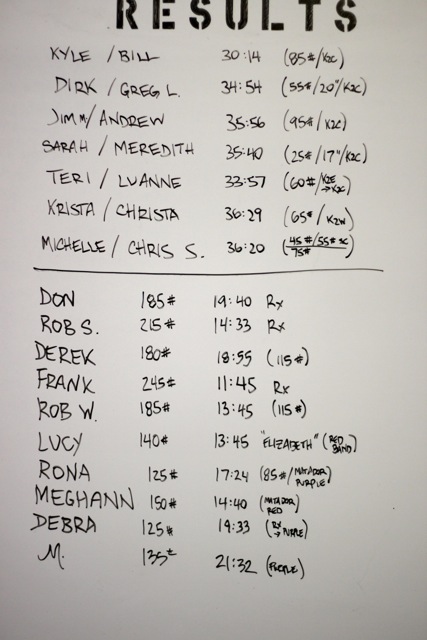 RESULTS
KYLE / BILL 30:14 (85#/K2C)
DIRK / GREG L. 34:54 (55#/20"/K2C)
JIMMY/ ANDREW 35:56 (95#/K2C)
SARAH / MEREDITH 35:40 (25#/17"/K2C)
TERI / LUANNE 33:57 (60#/K2E → K2C)
KRISTA / CHRISTA 36:29 (65#/K2W)
MICHELLE / CHRIS S. 36:20 (45#/55# 2C 75#)
DON 185# 19:40 Rx
ROB S. 215# 14:33 Rx
DEREK 180# 18:55 (115#)
FRANK 245# 11:45 Rx
ROB W. 185# 13:45 (115#)
LUCY 140# 13:45 "ELIZABETH" (RED BAND)
RONA 125# 17:24 (85#/MATADOR PURPLE)
MEGHANN 150# 14:40 (MATADOR RED)
DEBRA 125# 19:33 (Rx → PURPLE)
M. 135# 21:32 (PURPLE)